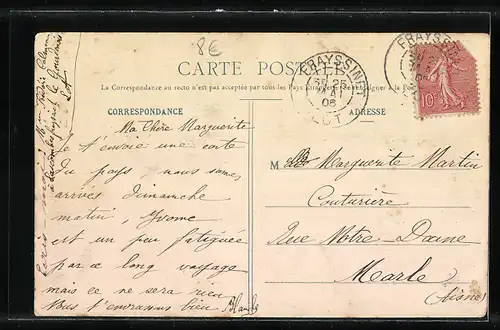 8€
CARTE POSTALE
La Correspondance au recto n'est pas acceptée par tous les Pays Étrangers. Se renseigner à la Poste
CORRESPONDANCE
ADRESSE
FRAYSSINET
LOT
06
FRAYSSINET
10
Ma Chère Marguerite
Je t'envoie une carte
du pays nous sommes
arrivés dimanche
matin, Yvonne
est un peu fatiguée
par ce long voyage
mais ce ne sera rien
Nous t'embrassons bien
M Marguerite Martin
Couturière
Rue Notre-Dame
Marle
(Aisne)
Lot